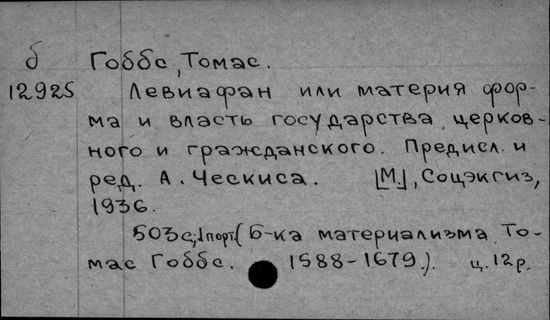 б Гоббс, Томас.
12925 Левиафан или материя фор-
ма и власть государства церков-
ного и гражданского. Предисл. и
ред. А. Ческиса. [М.], Соцэкгиз,
1936.
503с; 1 порт. (Б-ка материализма То-
мас Гоббс. 1588-1679.). ц. 12р.